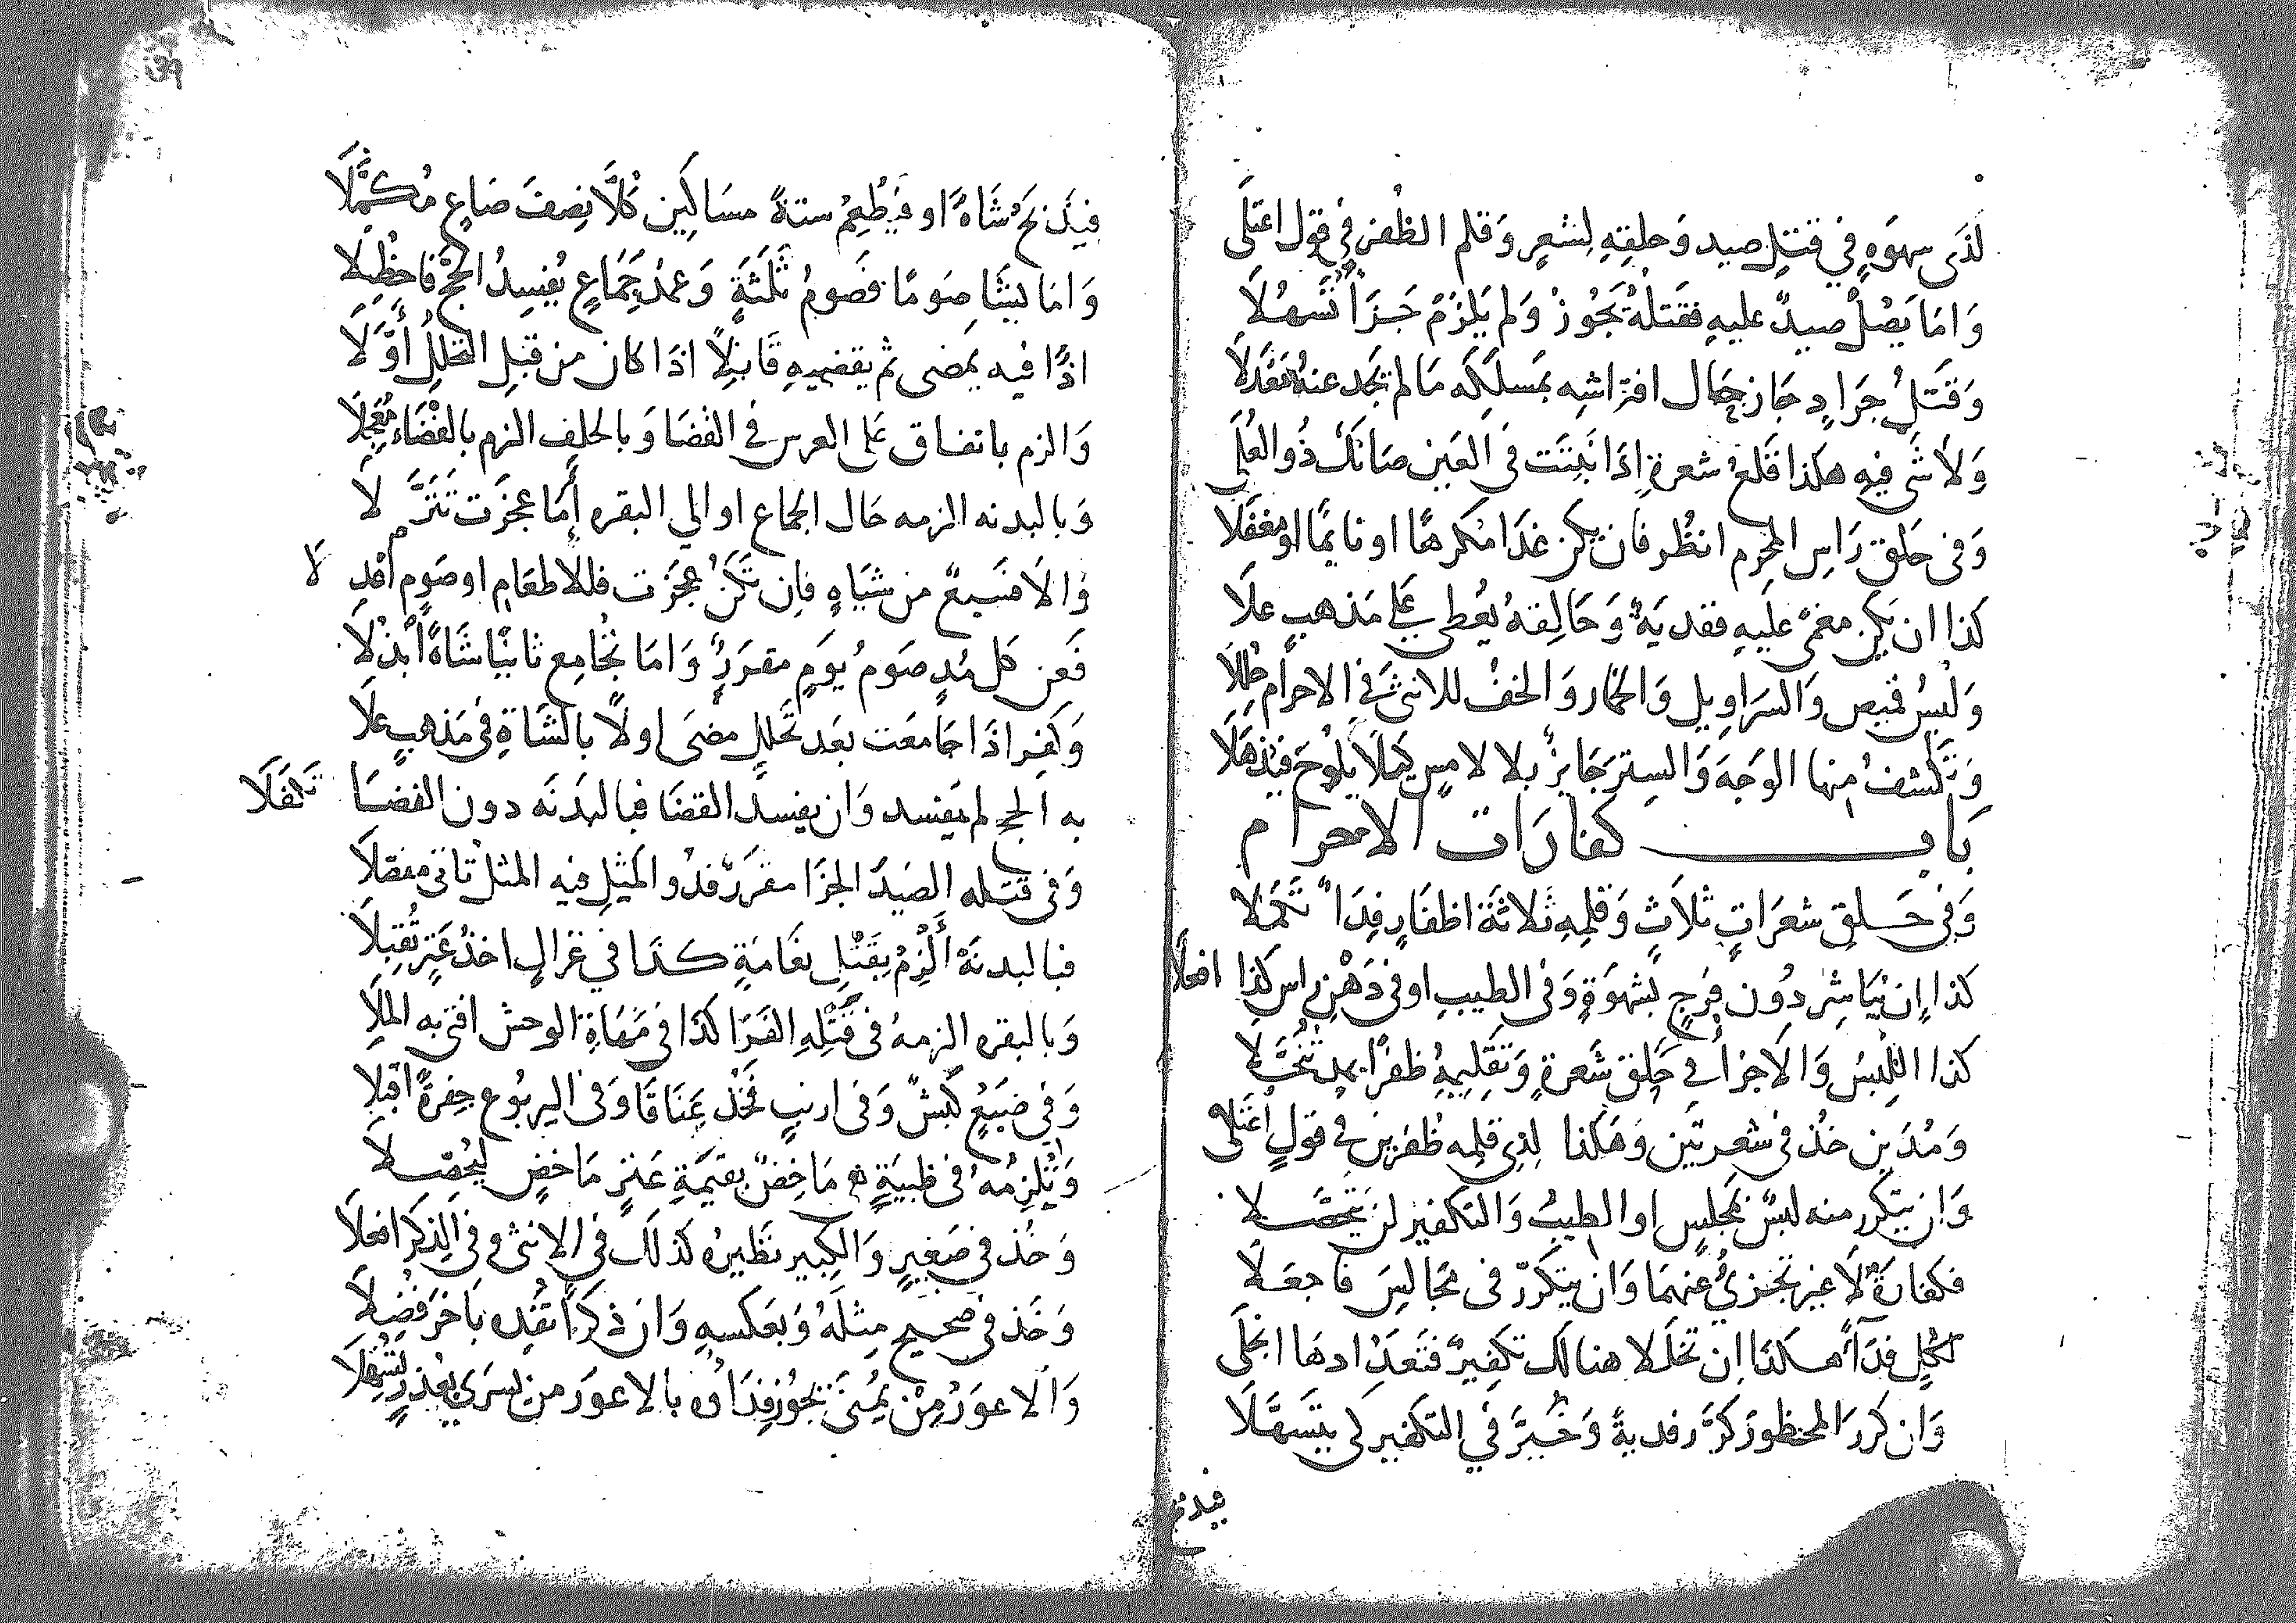 لذى سهوه في قتل صيد وحلقه لشعر وقلم الظفر في قول اعتلى
واما يصل صيد عليه فقتله يجوز ولم يلزم جزاء تسهلا
وقتل جراد جاز حال افتراشه بمسلكه ما لم تجد عنه معدلا
ولا شى فيه هكذا قلع شعرة إذا نبتت في العين صانك ذو العلى
وفى حلق راس المحرم انظر فان يكن غدا مكرها او نايما او مغفلا
كذا ان يكن مغمى عليه ففدية وحالقه يعطي على مذهب علا
ولبس قميص والسراويل والخمار والخف للانثى في الاحرام حللا
وتكشف منها الوجه والستر جايز بلا لامس كيلا يلوح فيذهلا
باب كفارات الاحرام
وفى حلق شعرات ثلاث وقلمه ثلاثة اظفار فداء تكملا
كذا إن يباشر دون فرج بشهوة وفى الطيب او في دهن راس كذا افعلا
كذا اللبس والاجزاء في حلق شعرة وتقليمه ظفرا بمد تنخلا
ومدين خذ فى شعرتين وهكذا لذي قلمه ظفرين في قول اعتلى
وان يتكرر منه لبس بمجلس او الطيب والتكفير لن يتحصلا
فكفارة لا غير تجزئ عنهما وان يتكرر فى مجالس فاجعلا
لكل فداء هكذا إن تخللا هنالك تكفير فتعدادها انجلى
وان كرر المحظور كرر فدية وخير في التكفير كى يتسهلا
فيذبح
فيذبح شاة او فيطعم ستة مساكين كلا نصف صاع مكملا
واما يشا صوما فصوم ثلثة وعمد جماع يفسد الحج فاحظلا
اذا فيه يمضى ثم يقضيه قابلا اذا كان من قبل التحلل أولا
والزم باتفاق على العرس في القضا وبالحلف الزم بالقضاء معجلا
وبالبدنه الزمه حال الجماع او الي البقره أما عجزت تنزلا
والا فسبع من شياه فإن تكن عجزت فللاطعام او صوم اقبلا
فعن كل مد صوم يوم مقرر واما تجامع ثانيا شاة ابذلا
وكفر اذا جامعت بعد تحلل مضى اولا بالشاة فى مذهب علا
به الحج لم يفسد وان يفسد القضا فبالبدنه دون القضا تكفلا
وفى قتله الصيد الجزا مقرر فذو المثل فيه المثل تانى مفصلا
فبالبدنة ألزم بقتل نعامة كذا في غزال اخذ عنز تقبلا
وبالبقره الزمه فى قتله الفرا كذا في مهاة الوحش افتى به الملا
وفي ضبع كبش وفى ارنب فخذ عناقا وفى اليربوع جفرة اقبلا
وتلزمه فى ظبية ماخض بقيمة عنز ماخض ليحصلا
وخذ في صغير والكبير نظيره كذلك في الانثى وفي الذكر افعلا
وخذ فى صحيح مثله وبعكسه وان ذكرا تفده باخر فضلا
والاعور من يمنى يجوز فداؤه بالاعور من يسرى بعذر